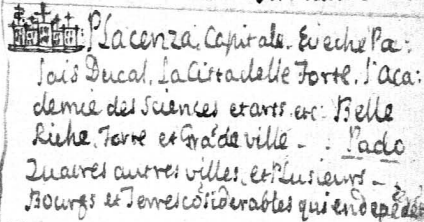 Placenza, Capitale. Eveche Pa:
lais Ducal. La Cittadelle Forte. l'Aca:
demie des Sciences et arts. etc: Belle
Riche. Forte et Grade ville - : Pado
Quatres autres villes, et Plusieurs -
Bourgs et Terres cosiderables qui en depedet